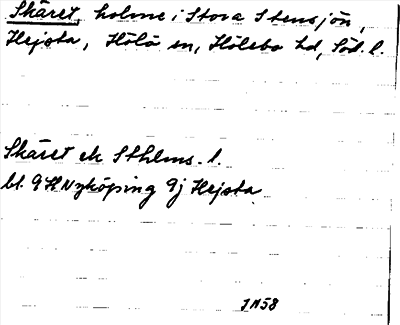 Skäret, holme i Stora Stensjön,
Hejsta, Hölö sn, Hölebo hd, Söd. l.
Skäret ek Sthlms. l.
bl. 9H Nyköping 9j Hejsta
JM58